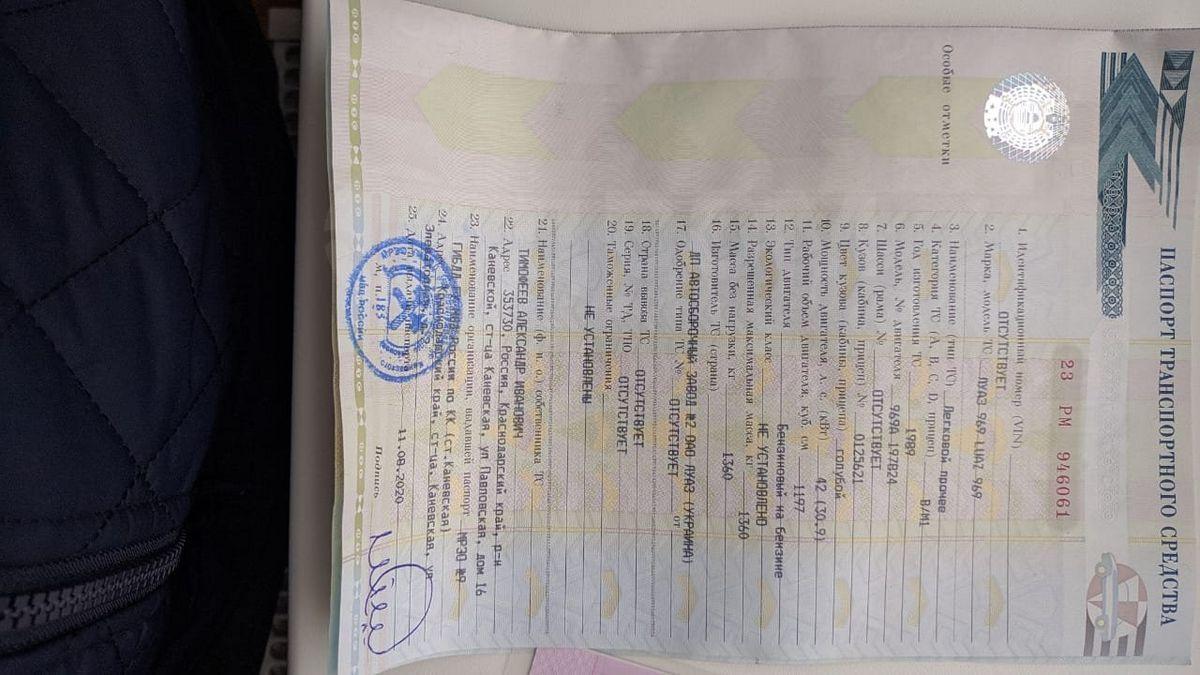 ПАСПОРТ ТРАНСПОРТНОГО СРЕДСТВА
23 РМ 946061
1. Идентификационный номер (VIN)
ОТСУТСТВУЕТ
2. Марка, модель ТС ЛУАЗ 969 LUAZ 969
3. Наименование (тип ТС) Легковой прочее
4. Категория ТС (А, В, С, D, прицеп) B/M1
5. Год изготовления ТС 1989
6. Модель, № двигателя 969А 197824
7. Шасси (рама) № ОТСУТСТВУЕТ
8. Кузов (кабина, прицеп) № 0125621
9. Цвет кузова (кабины, прицепа) голубой
10. Мощность двигателя, л. с. (кВт) 42 (30.9)
11. Рабочий объем двигателя, куб. см 1197
12. Тип двигателя Бензиновый на бензине
13. Экологический класс НЕ УСТАНОВЛЕНО
14. Разрешенная максимальная масса, кг 1360
15. Масса без нагрузки, кг 1360
16. Изготовитель ТС (страна)
ДП АВТОСБОРОЧНЫЙ ЗАВОД №2 ОАО ЛУАЗ (УКРАИНА)
17. Одобрение типа ТС № ОТСУТСТВУЕТ от
18. Страна вывоза ТС ОТСУТСТВУЕТ
19. Серия, № ТД, ТПО ОТСУТСТВУЕТ
20. Таможенные ограничения
НЕ УСТАНОВЛЕНЫ
21. Наименование (ф. и. о.) собственника ТС
ТИМОФЕЕВ АЛЕКСАНДР ИВАНОВИЧ
22. Адрес 353730, Россия, Краснодарский край, р-н
Каневской, ст-ца Каневская, ул Павловская, дом 16
23. Наименование организации, выдавшей паспорт МРЭО №9
ГИБДД России по КК (ст.Каневская)
24. край, ст-ца. Каневская, ул
25. 11.08.2020
М. П. 183
МВД РОССИИ
Подпись
Особые отметки